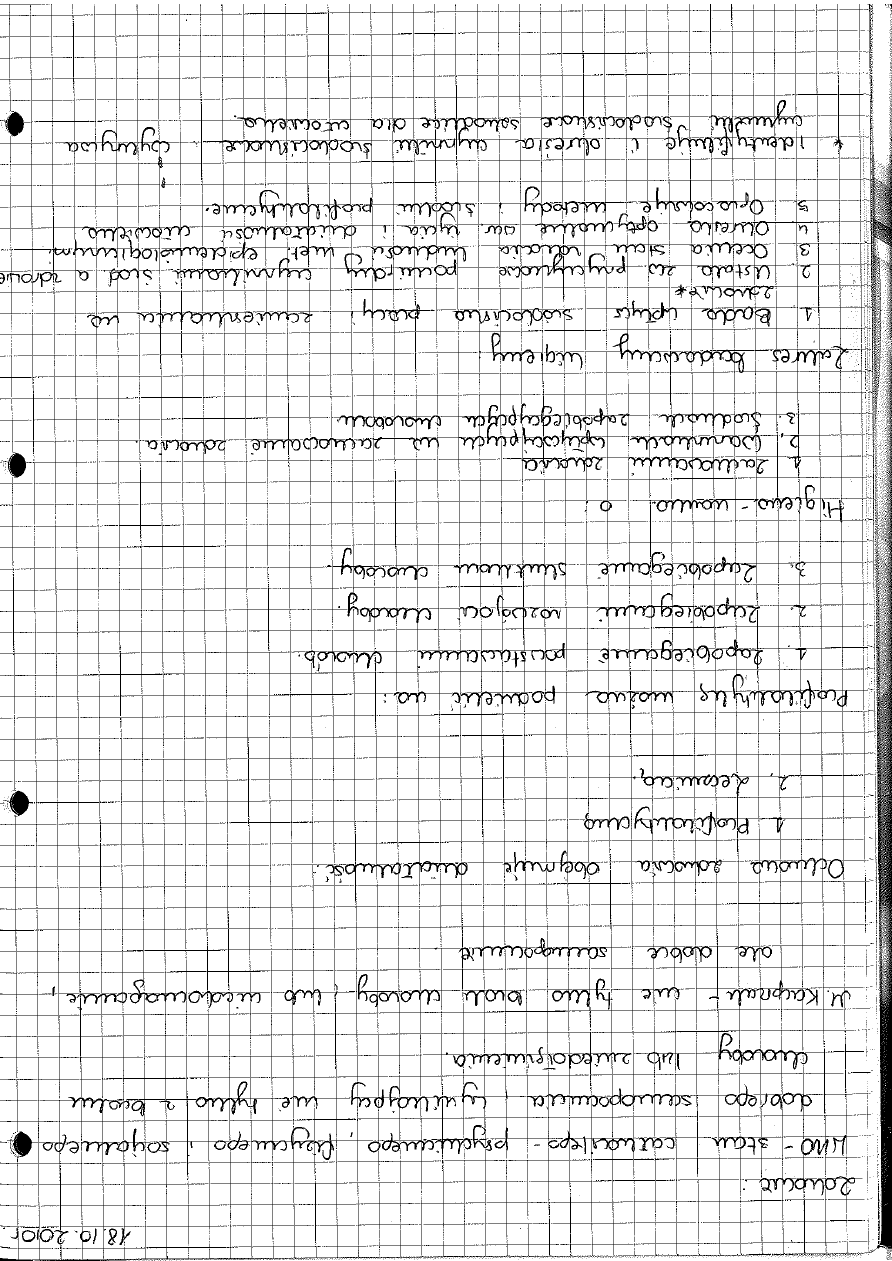 18.10.2010r
Zdrowie:
WHO - stan całkowitego - psychicznego, fizycznego i socjalnego
dobrego samopoczucia, wynikający nie tylko z braku
choroby lub zniedołężnienia.
M. Kacprzak - nie tylko brak choroby, lub niedomagania,
ale dobre samopoczucie
Ochrona zdrowia obejmuje działalność:
1. Profilaktyczną
2. Leczniczą.
Profilaktykę można podzielić na:
1. Zapobieganie powstawaniu chorób.
2. Zapobieganie rozwojowi choroby.
3. Zapobieganie skutkom choroby.
Higiena - nauka o:
1. Zachowaniu zdrowia
2. Warunkach wpływających na zachowanie zdrowia.
3. Środkach zapobiegających chorobom
Zakres badawczy higieny:
1. Bada wpływ środowiska pracy, zamieszkania na
zdrowie*
2. Ustala zw. przyczynowe pomiędzy czynnikami środ a zdrowie
3. Ocenia stan zdrowia ludności met. epidemiologicznymi
4. Określa optymalne war życia i działalności człowieka
5. Opracowuje metody i środki profilaktyczne.
* Identyfikuje i określa czynniki środowiskowe
czynniki środowiskowe szkodliwe dla człowieka.